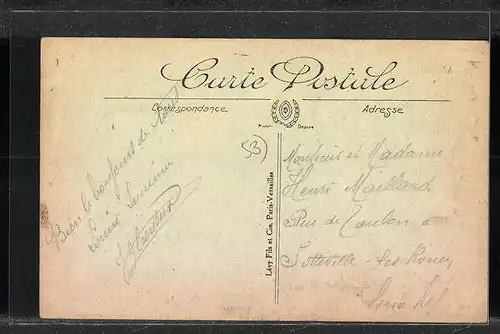 Carte Postale
Correspondance
Adresse
Marque Déposée
53
Bien le bonjour de
Lévy Fils et Cie. Paris-Versailles
Monsieur et Madame
Henri Maillard
Rue de Toulon
Sotteville-les-Rouen
Seine Inf.